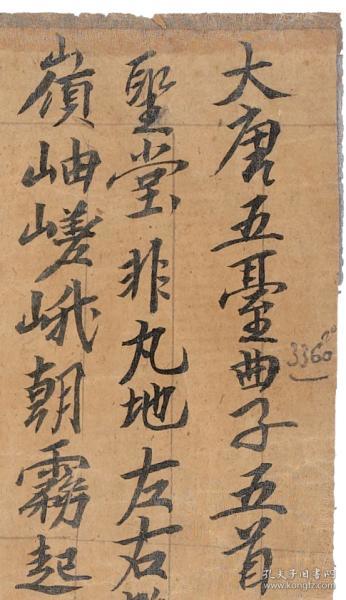 大唐五臺曲子五首
聖堂非凡地左右
嶺岫嵯峨朝霧起
3360
孔夫子旧书网